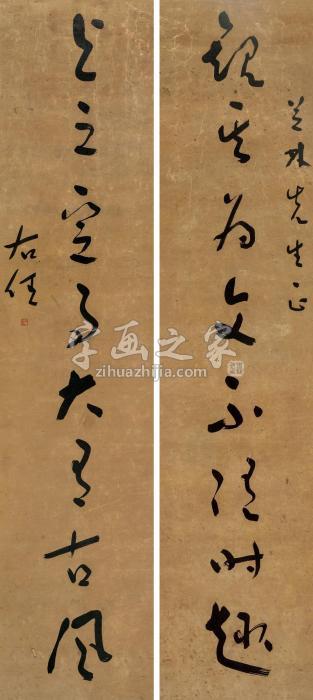 芝林先生正
觀其為文不随时趣
与之定交大有古風
右任
字画之家
zihuazhijia.com